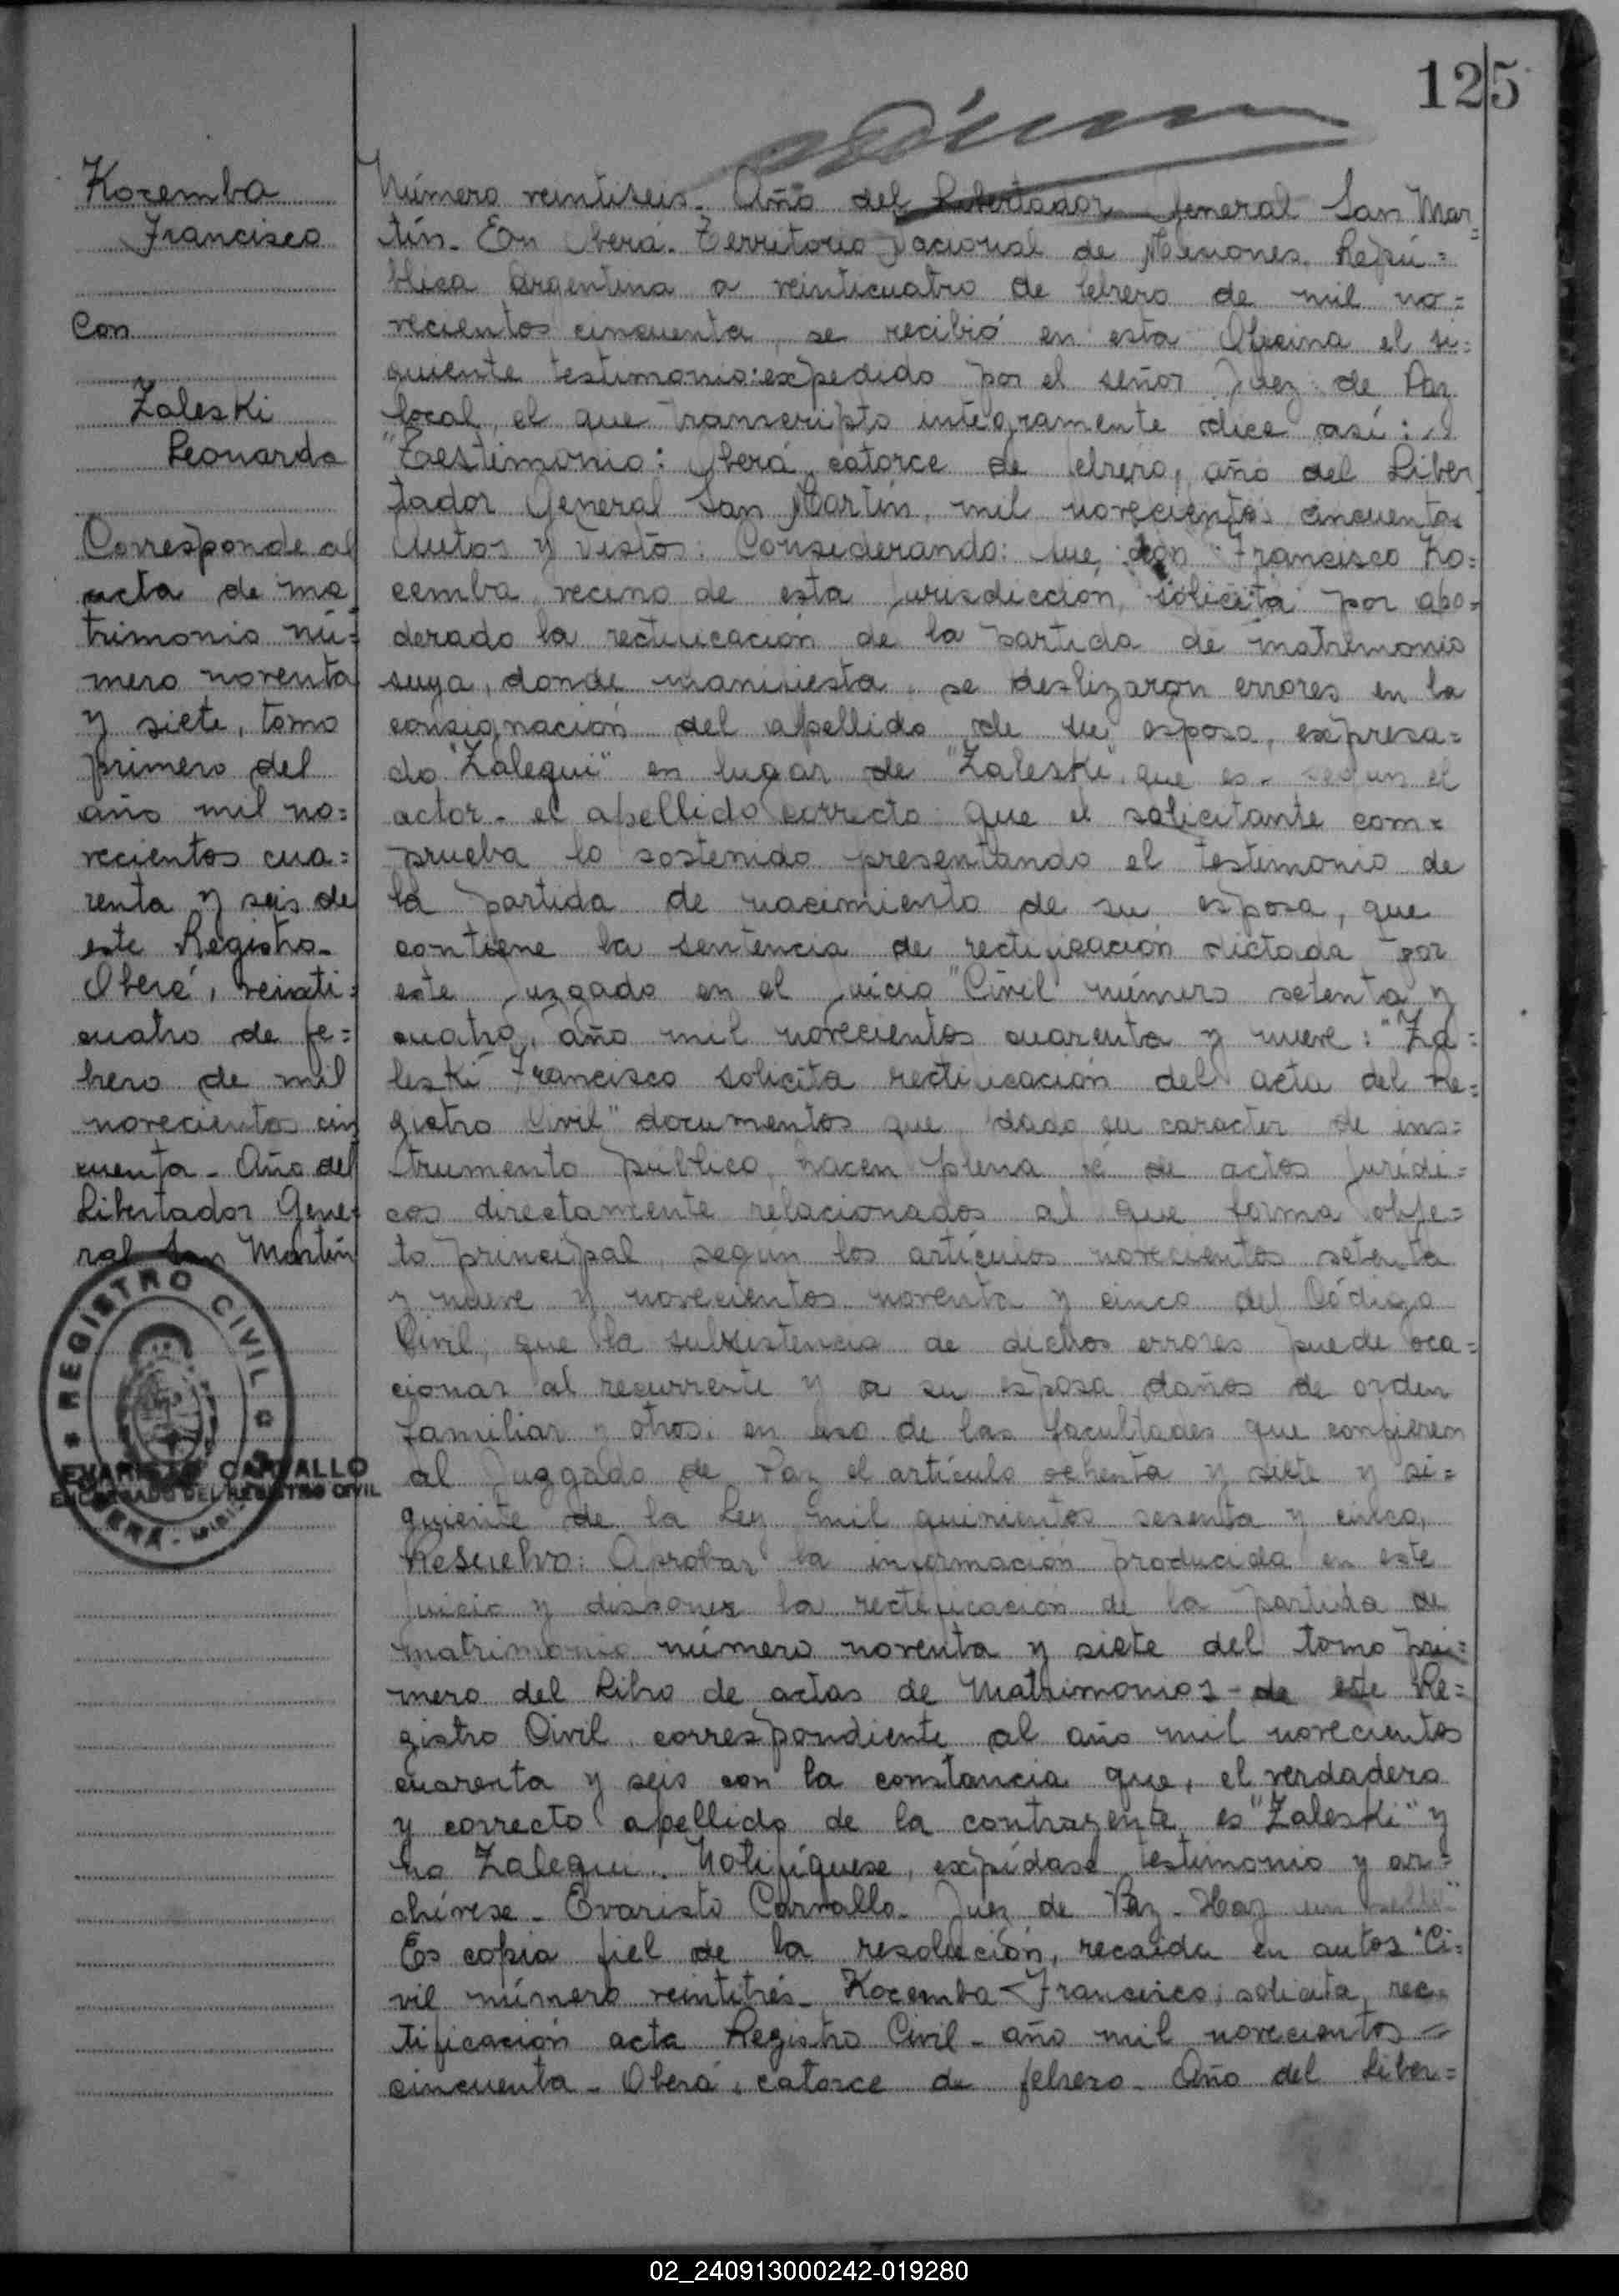 125
Kozemba
Francisco
Con
Zaleski
Leonarda
Corresponde al
acta de ma
trimonio nú=
mero noventa
y siete, tomo
primero del
año mil no=
vecientos cua=
renta y seis de
este Registro-
Oberá, veinti=
cuatro de fe=
brero de mil
novecientos cin
cuenta - Año del
Libertador Gene=
ral San Martín
REGISTRO CIVIL
EVARISTO CARVALLO
ENCARGADO DEL REGISTRO CIVIL
OBERÁ - MISIONES
Número veintiseis - Año del Libertador General San Mar=
tín - En Oberá - Territorio Nacional de Misiones, Repú=
blica Argentina a veinticuatro de febrero de mil no=
vecientos cincuenta, se recibió en esta Oficina el si=
guiente testimonio: expedido por el señor Juez de Paz
local, el que transcripto integramente dice así:
"Testimonio: Oberá, catorce de febrero, año del Liber
tador General San Martín, mil novecientos cincuenta
Autos y Vistos: Considerando: Que don Francisco Ko=
cemba, vecino de esta jurisdicción, solicita por apo=
derado la rectificación de la partida de matrimonio
suya, donde manifiesta, se deslizaron errores en la
consignación del apellido de su esposa, expresa=
do "Zalequi" en lugar de "Zaleski", que es - según el
actor - el apellido correcto que el solicitante com=
prueba lo sostenido presentando el testimonio de
la partida de nacimiento de su esposa, que
contiene la sentencia de rectificación dictada por
este Juzgado en el juicio "Civil número setenta y
cuatro, año mil novecientos cuarenta y nueve: "Za=
leski Francisco solicita rectificación del acta del Re=
gistro Civil" documentos que, dado su caracter de ins=
trumento público, hacen plena fé de actos jurídi=
cos directamente relacionados al que forma obje=
to principal, según los artículos novecientos setenta
y nueve y novecientos noventa y cinco del Código
Civil, que la subsistencia de dichos errores puede oca=
cionar al recurrente y a su esposa daños de orden
familiar y otros; en uso de las facultades que confieren
al Juzgado de Paz el artículo ochenta y siete y si=
guiente de la Ley mil quinientos sesenta y cinco,
Resuelvo: Aprobar la información producida en este
juicio y disponer la rectificación de la partida de
matrimonio número noventa y siete del tomo pri=
mero del Libro de actas de Matrimonios - de este Re=
gistro Civil, correspondiente al año mil novecientos
cuarenta y seis con la constancia que, el verdadero
y correcto apellido de la contrayente es "Zaleski" y
no Zalequi. Notifíquese, expídase testimonio y ar=
chívese - Evaristo Carvallo - Juez de Paz - Hay un sello"
Es copia fiel de la resolución, recaída en autos "Ci=
vil número veintitrés - Kozemba Francisco; solicita, rec=
tificación acta Registro Civil - año mil novecientos =
cincuenta - Oberá, catorce de febrero - Año del Liber=
02_240913000242-019280